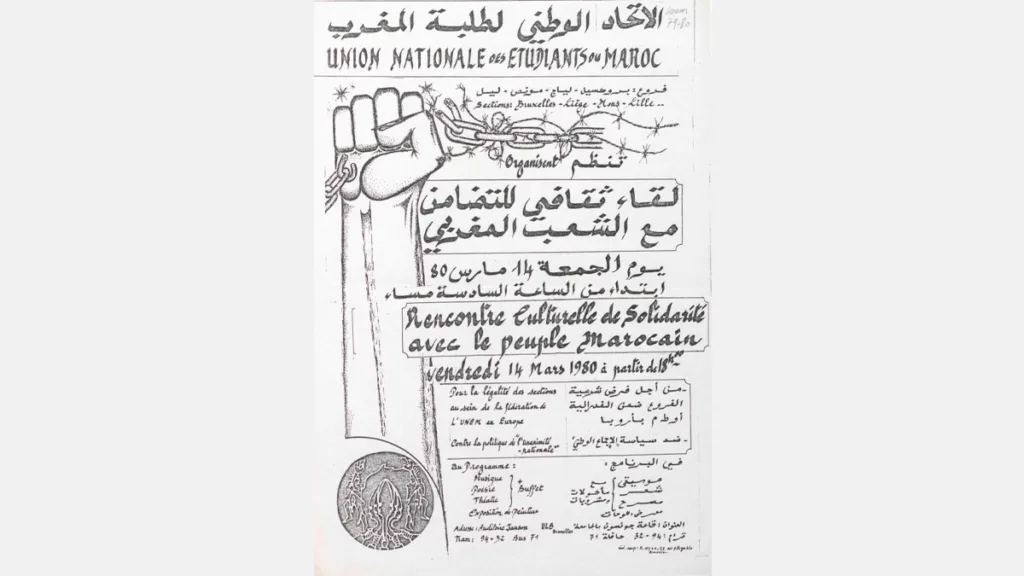 الاتحاد الوطني لطلبة المغرب
79-80
UNION NATIONALE DES ETUDIANTS DU MAROC
فروع: بروكسيل - لياج - مونس - ليل
Sections: Bruxelles - Liège - Mons - Lille ..
Organisent تنظم
لقاء ثقافي للتضامن
مع الشعب المغربي
يوم الجمعة 14 مارس 80
ابتداء من الساعة السادسة مساء
Rencontre Culturelle de Solidarité
avec le peuple Marocain
Vendredi 14 Mars 1980 à partir de 18h00
Pour la légalité des sections
au sein de la fédération de
L'UNEM en Europe
Contre la politique de "l'unanimité
-nationale"
-من أجل فرض شرعية
الفروع ضمن الفدرالية
أوطم بأروبا
-ضد سياسة "الإجماع الوطني"
Au Programme:
Musique
Poésie
Théatre
+ Buffet
Exposition de Peinture
في البرنامج:
موسيقى
شعر
مسرح
مع
مأكولات
ومشروبات
معرض لوحات
Adresse: Auditoire Janson ULB Bruxelles
Tram: 94-32 Bus 71
العنوان: قاعة جونسون بالجامعة
ترام: 94-32 حافلة 71